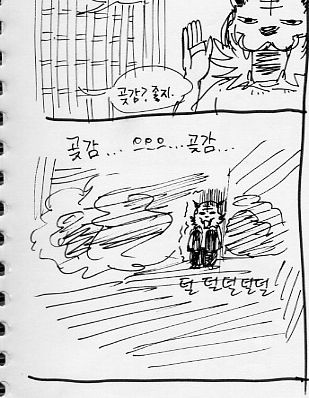 곶감? 좋지.
곶감... 으으으...곶감...
덜 덜덜덜덜!